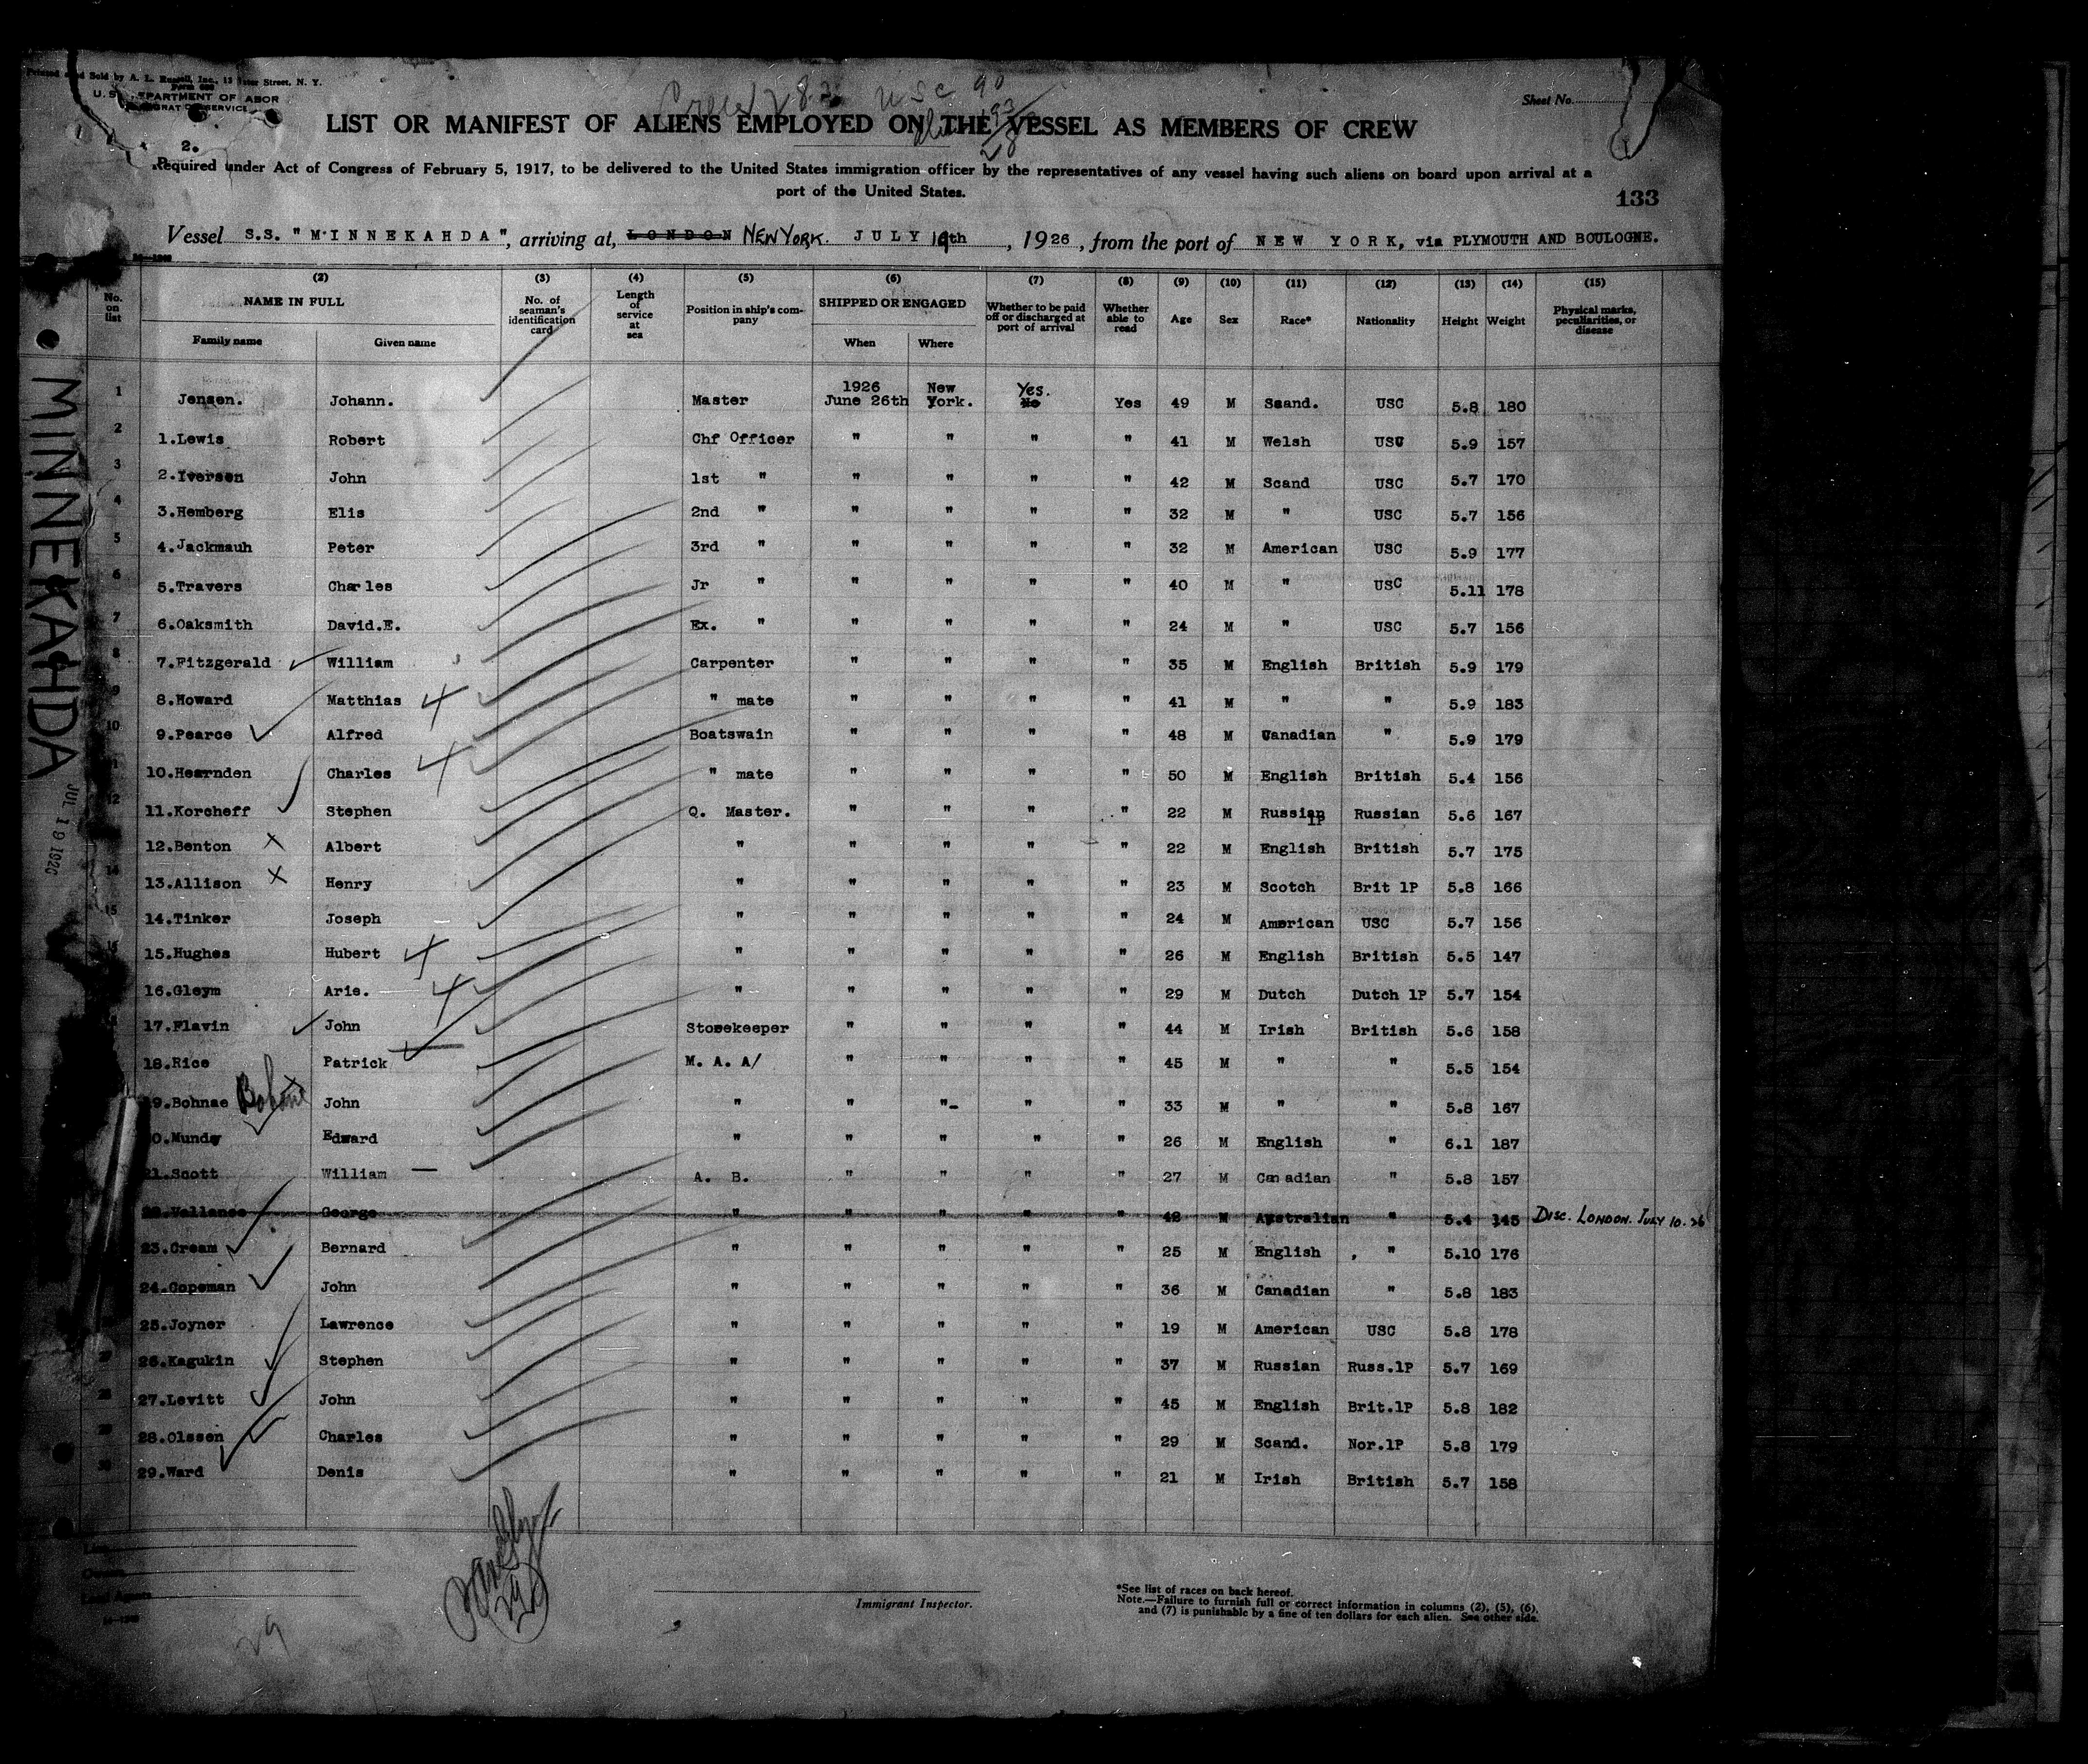 Printed and Sold by A. L. Russell, Inc., 13 Water Street, N. Y.
Form 680
U. S. DEPARTMENT OF LABOR
IMMIGRATION SERVICE
Sheet No.
USC 90
LIST OR MANIFEST OF ALIENS EMPLOYED ON THE VESSEL AS MEMBERS OF CREW
2.
Required under Act of Congress of February 5, 1917, to be delivered to the United States immigration officer by the representatives of any vessel having such aliens on board upon arrival at a
port of the United States.
133
Vessel S.S. "MINNEKAHDA", arriving at, LONDON NEW YORK. JULY 19th, 1926, from the port of NEW YORK, via PLYMOUTH AND BOULOGNE.
No. on list (2) NAME IN FULL Family name Given name (3) No. of seaman's identification card (4) Length of service at sea (5) Position in ship's company (6) SHIPPED OR ENGAGED When Where (7) Whether to be paid off or discharged at port of arrival (8) Whether able to read (9) Age (10) Sex (11) Race* (12) Nationality (13) Height (14) Weight (15) Physical marks, peculiarities, or disease
1 Jensen. Johann. Master 1926 June 26th New York. Yes. No Yes 49 M Scand. USC 5.8 180
2 1.Lewis Robert Chf Officer " " " " 41 M Welsh USC 5.9 157
3 2.Iversen John 1st " " " " " 42 M Scand USC 5.7 170
4 3.Hemberg Elis 2nd " " " " " 32 M " USC 5.7 156
5 4.Jackmauh Peter 3rd " " " " " 32 M American USC 5.9 177
6 5.Travers Charles Jr " " " " " 40 M " USC 5.11 178
7 6.Oaksmith David.E. Ex. " " " " " 24 M " USC 5.7 156
8 7.Fitzgerald William Carpenter " " " " 35 M English British 5.9 179
9 8.Howard Matthias " mate " " " " 41 M " " 5.9 183
10 9.Pearce Alfred Boatswain " " " " 48 M Canadian " 5.9 179
11 10.Hearnden Charles " mate " " " " 50 M English British 5.4 156
12 11.Korcheff Stephen Q. Master. " " " " 22 M Russian 1P Russian 5.6 167
12.Benton Albert " " " " " 22 M English British 5.7 175
14 13.Allison Henry " " " " " 23 M Scotch Brit 1P 5.8 166
15 14.Tinker Joseph " " " " " 24 M American USC 5.7 156
16 15.Hughes Hubert " " " " " 26 M English British 5.5 147
16.Gleym Arie. " " " " " 29 M Dutch Dutch 1P 5.7 154
17.Flavin John Storekeeper " " " " 44 M Irish British 5.6 158
18.Rice Patrick M. A. A/ " " " " 45 M " " 5.5 154
19.Bohnae John " " "- " " 33 M " " 5.8 167
0.Mundy Edward " " " " " 26 M English " 6.1 187
21.Scott William — A. B. " " " " 27 M Canadian " 5.8 157
22.Vallance George " " " " " 42 M Australian " 5.4 145 DISC. LONDON. JULY 10.26
23.Cream Bernard " " " " " 25 M English " 5.10 176
24.Copeman John " " " " " 36 M Canadian " 5.8 183
25.Joyner Lawrence " " " " " 19 M American USC 5.8 178
27 26.Kagukin Stephen " " " " " 37 M Russian Russ.1P 5.7 169
28 27.Levitt John " " " " " 45 M English Brit.1P 5.8 182
29 28.Olssen Charles " " " " " 29 M Scand. Nor.1P 5.8 179
30 29.Ward Denis " " " " " 21 M Irish British 5.7 158
MINNEKAHDA
JUL 19 1926
29
Immigrant Inspector.
*See list of races on back hereof.
Note.—Failure to furnish full or correct information in columns (2), (5), (6),
and (7) is punishable by a fine of ten dollars for each alien. See other side.